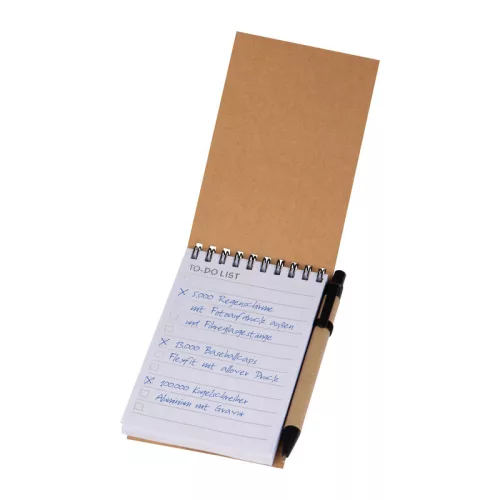 TO-DO LIST
× 5.000 Regenschirme
mit Fotoaufdruck außen
und Fiberglasgestänge
× 15.000 Baseballcaps
Flexfit mit allover Druck
× 100.000 Kugelschreiber
Aluminium mit Gravur